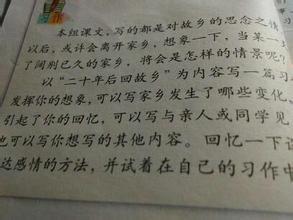 本组课文，写的都是对故乡的思念之情
以后，或许会离开家乡，想象一下，当某一
了阔别已久的家乡，将会是怎样的情景呢？
以“二十年后回故乡”为内容写一篇习
发挥你的想象，可以写家乡发生了哪些变化，
引起了你的回忆，可以写与亲人或同学见
也可以写你想写的其他内容。回忆一下课
达感情的方法，并试着在自己的习作中